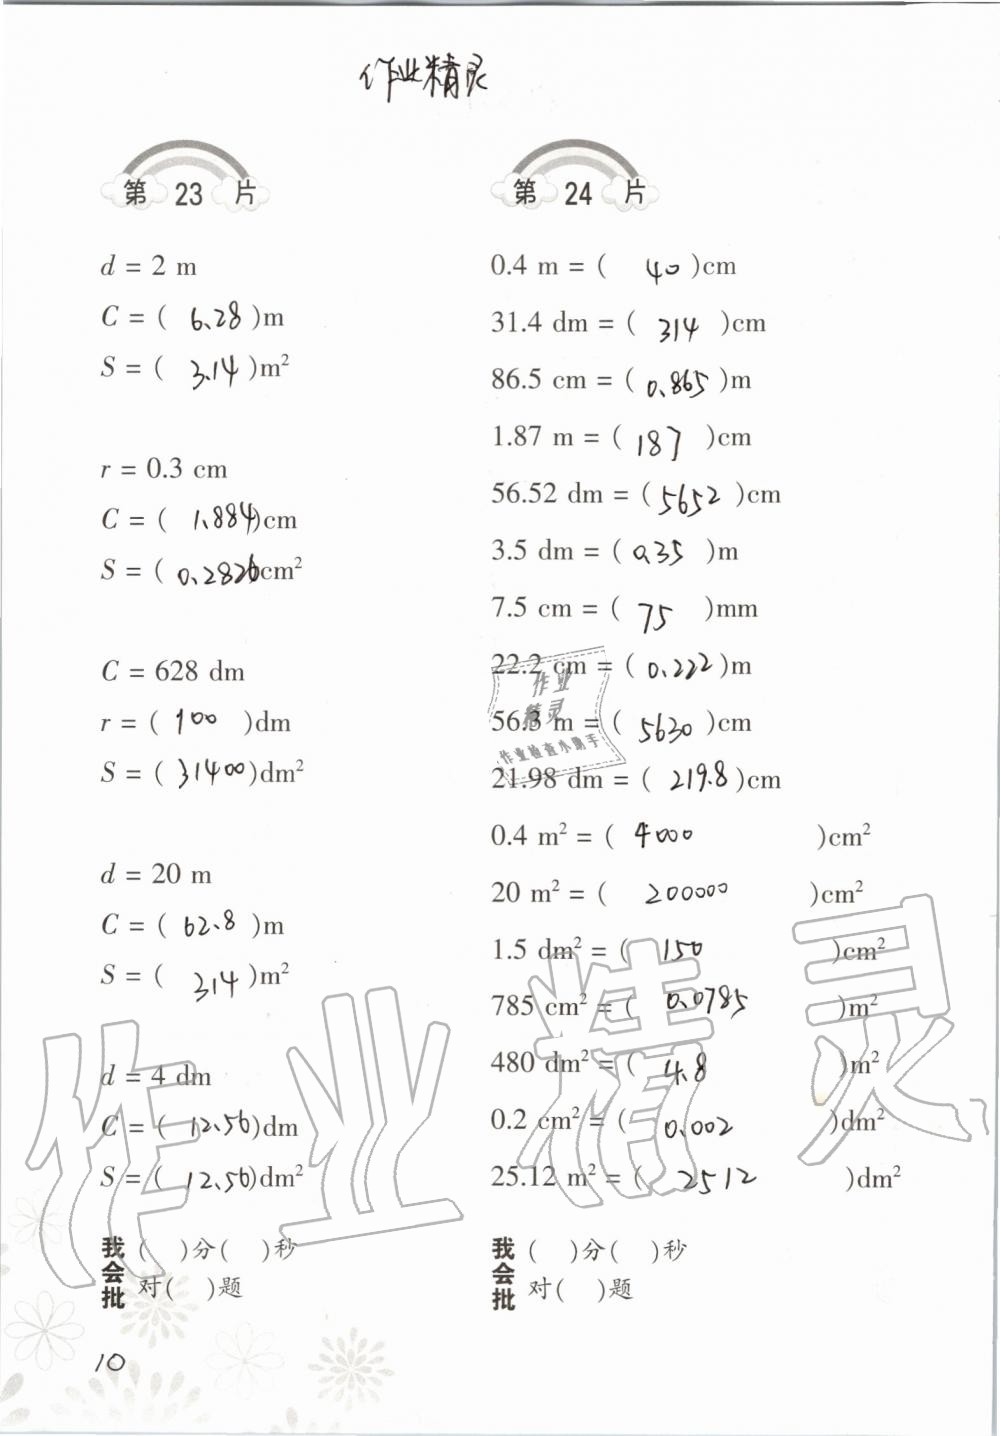 作业精灵
第 23 片
d = 2 m
C = ( 6.28 )m
S = ( 3.14 )m²
r = 0.3 cm
C = ( 1.884)cm
S = ( 0.2826cm²
C = 628 dm
r = ( 100 )dm
S = ( 31400)dm²
d = 20 m
C = ( 62.8 )m
S = ( 314 )m²
d = 4 dm
C = ( 12.56)dm
S = ( 12.56)dm²
我会批
( )分( )秒
对( )题
第 24 片
0.4 m = ( 40 )cm
31.4 dm = ( 314 )cm
86.5 cm = ( 0.865 )m
1.87 m = ( 187 )cm
56.52 dm = ( 5652 )cm
3.5 dm = ( 0.35 )m
7.5 cm = ( 75 )mm
22.2 cm = ( 0.222 )m
56.3 m = ( 5630 )cm
21.98 dm = ( 219.8 )cm
0.4 m² = ( 4000 )cm²
20 m² = ( 200000 )cm²
1.5 dm² = ( 150 )cm²
785 cm² = ( 0.0785 )m²
480 dm² = ( 4.8 )m²
0.2 cm² = ( 0.002 )dm²
25.12 m² = ( 2512 )dm²
我会批
( )分( )秒
对( )题
作业
精灵
作业检查小助手
作业精灵
10